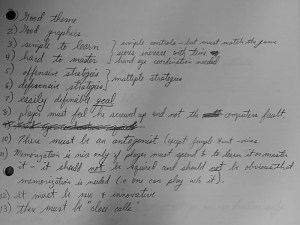 1) Good theme
2) Good graphics
3) simple to learn } simple controls - but must match the game
4) hard to master } goes increase with time
hand eye coordination needed
5) offensive strategies } multiple strategies
6) defensive strategies
7) easily definable goal
8) player must feel he screwed up and not the computers fault,
10) There must be an antagonist (except puzzle
11) Memorization is nice only if player must spend $ to learn it or master
it - it should not be against and should not be obvious that
memorization is needed (ie one can play w/o it).
12) It must be new & innovative
13) There must be "close calls"